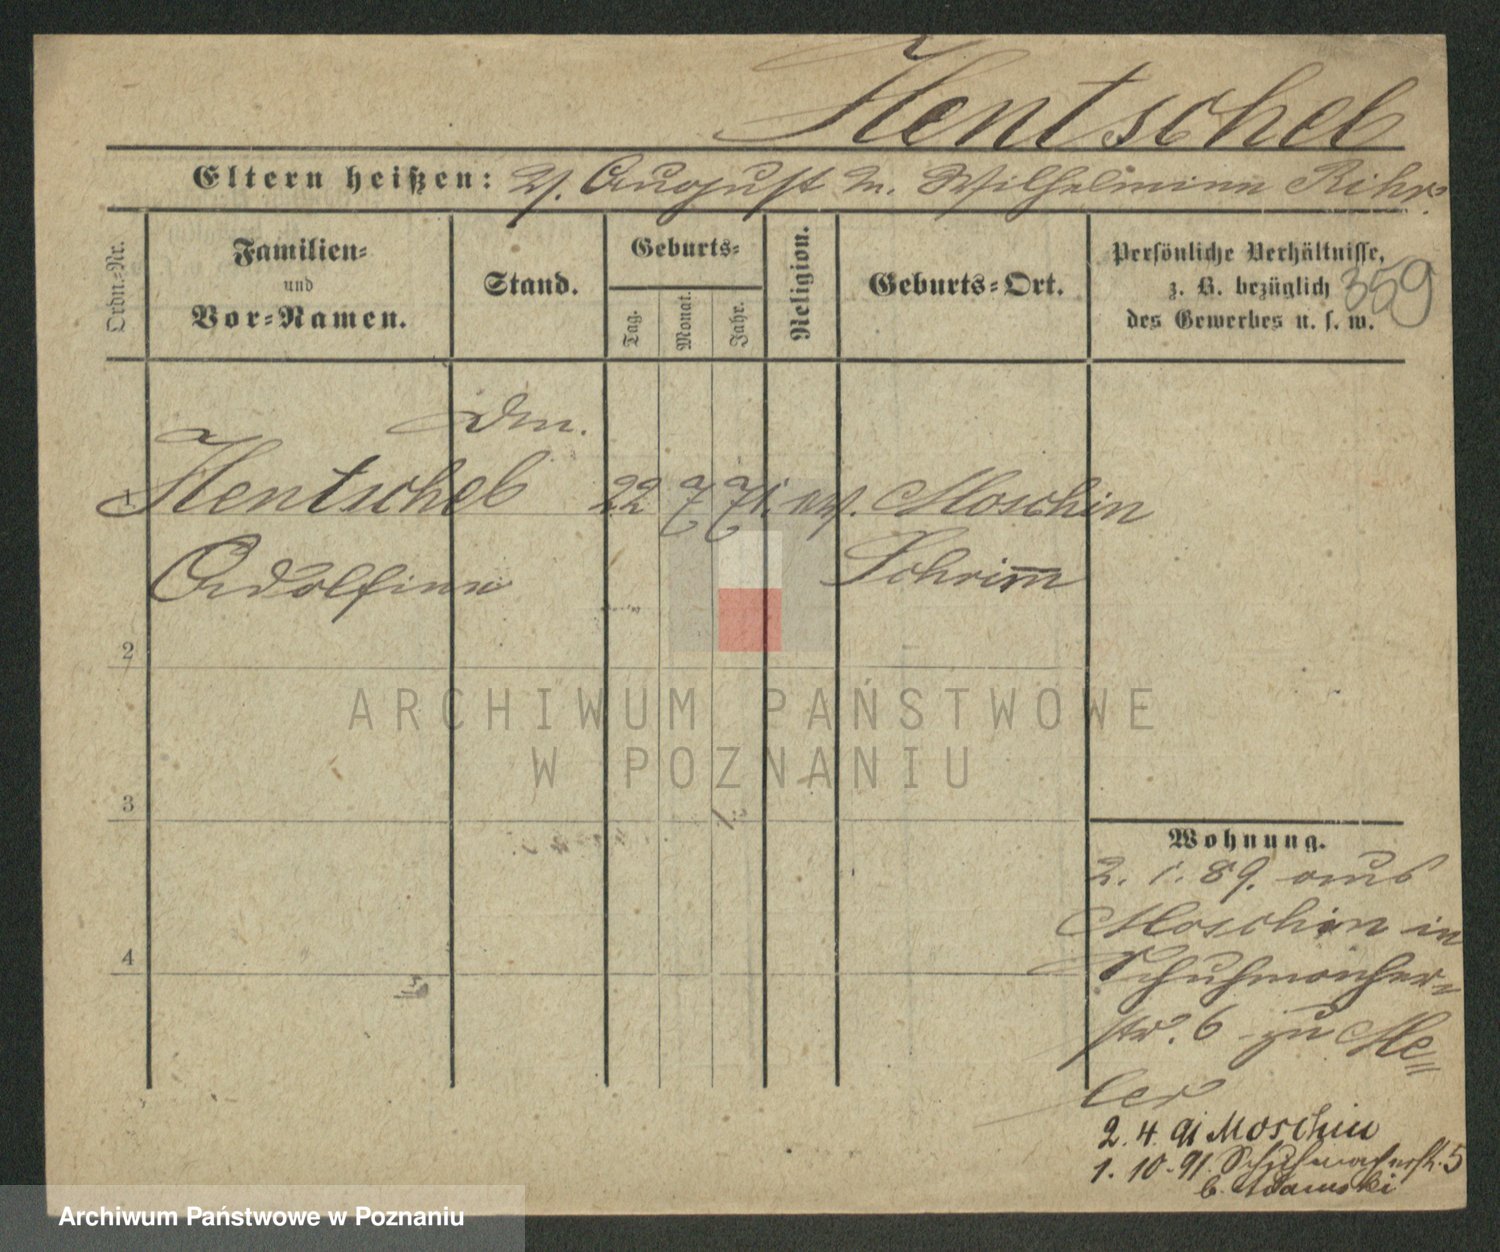 Hentschel
Eltern heißen: V. August M. Wilhelmine
Ordn.-Nr.
Familien-
und
Vor-Namen.
Stand.
Geburts-
Tag.
Monat.
Jahr.
Religion.
Geburts-Ort.
Persönliche Verhältnisse,
z. B. bezüglich
des Gewerbes u. s. w.
359
1 Hentschel 22 7 71. ev. Moschin
Adolfine Schrimm
2
3
4
Wohnung.
2. 1. 89. aus
Moschin in
Schuhmacher-
str. 6 zu
2. 4. 91 Moschin
1. 10. 91. Schuhmacherstr. 5
b. Adamski
ARCHIWUM PAŃSTWOWE
W POZNANIU
Archiwum Państwowe w Poznaniu